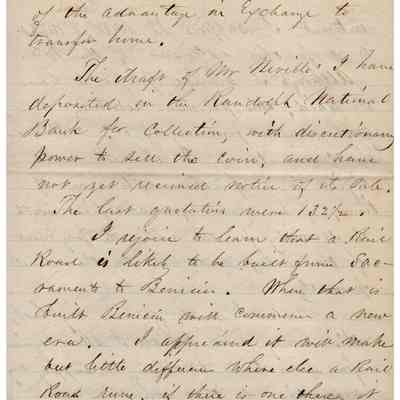 of the advantage in Exchange to
transfer home.
The draft of Mr Neville's I have
deposited in the Randolph National
Bank for Collection, with discretionary
power to sell the Coin, and have
not yet received notice of its Sale.
The last quotation were 132½.
I rejoice to learn that a Rail
Road is likely to be built from Sac-
ramento to Benicia. When that is
built Benicia will commence a new
era. I apprehend it will make
but little difference where else a Rail
Road runs, if there is one there it